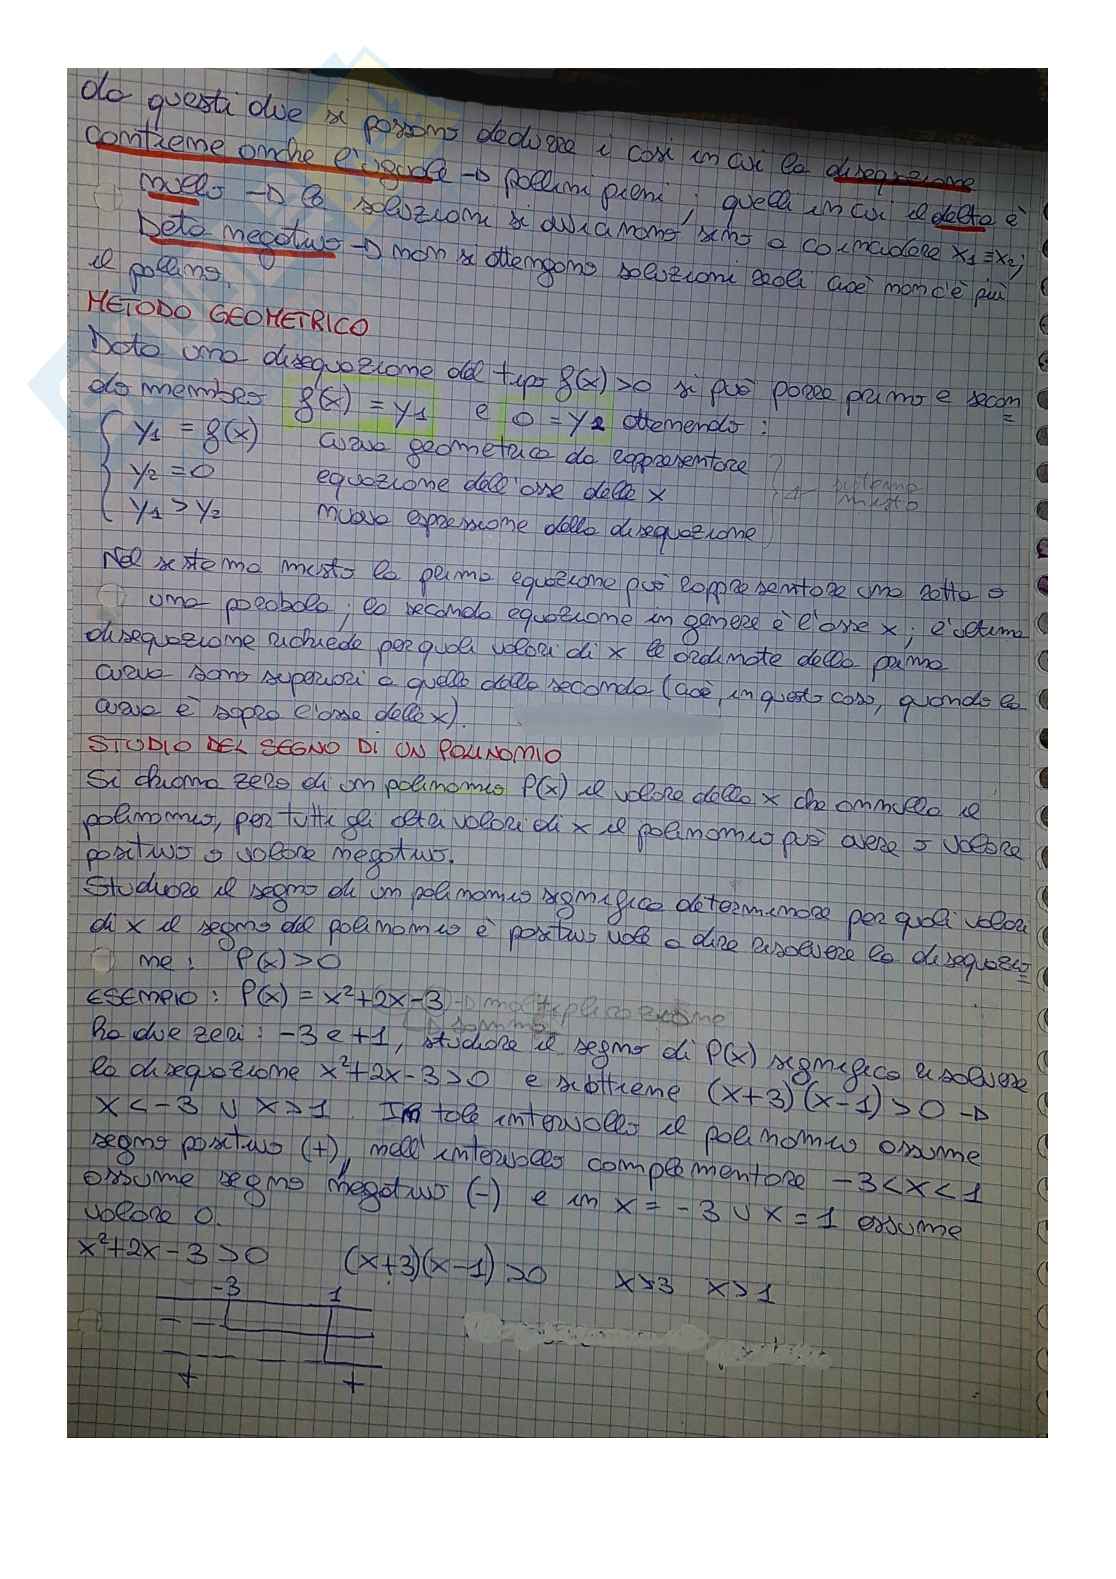 da questi due si possono dedurre i casi in cui la disequazione
contiene anche l'uguale → pallini pieni; quelli in cui il delta è
nullo → le soluzioni si avvicinano sino a coincidere x₁=x₂;
Delta negativo → non si ottengono soluzioni reali cioè non c'è più
il pallino.
METODO GEOMETRICO
Data una disequazione del tipo f(x)>0 si può porre primo e secon
do membro f(x) = y₁ e 0 = y₂ ottenendo:
y₁ = f(x) curva geometrica da rappresentare
y₂ = 0 equazione dell'asse delle x
y₁ > y₂ nuova espressione della disequazione
sistema
misto
Nel sistema misto la prima equazione può rappresentare una retta o
una parabola; la secondo equazione in genere è l'asse x; l'ultima
disequazione richiede per quali valori di x le ordinate della prima
curva sono superiori a quelle della seconda (cioè, in questo caso, quando la
curva è sopra l'asse delle x).
STUDIO DEL SEGNO DI UN POLINOMIO
Si chiama zero di un polinomio P(x) il valore della x che annulla il
polinomio, per tutti gli altri valori di x il polinomio può avere o valore
positivo o valore negativo.
Studiare il segno di un polinomio significa determinare per quali valori
di x il segno del polinomio è positivo vale a dire risolvere la disequazio
ne: P(x)>0
ESEMPIO: P(x) = x²+2x-3 → moltiplicazione
→ somma
ha due zeri: -3 e +1, studiare il segno di P(x) significa risolvere
la disequazione x²+2x-3>0 e si ottiene (x+3)(x-1)>0 →
x<-3 ∪ x>1. In tale intervallo il polinomio assume
segno positivo (+), nell'intervallo complementare -3<x<1
assume segno negativo (-) e in x = -3 ∪ x = 1 assume
valore 0.
x²+2x-3>0 (x+3)(x-1)>0 x>3 x>1
-3 1
+ +